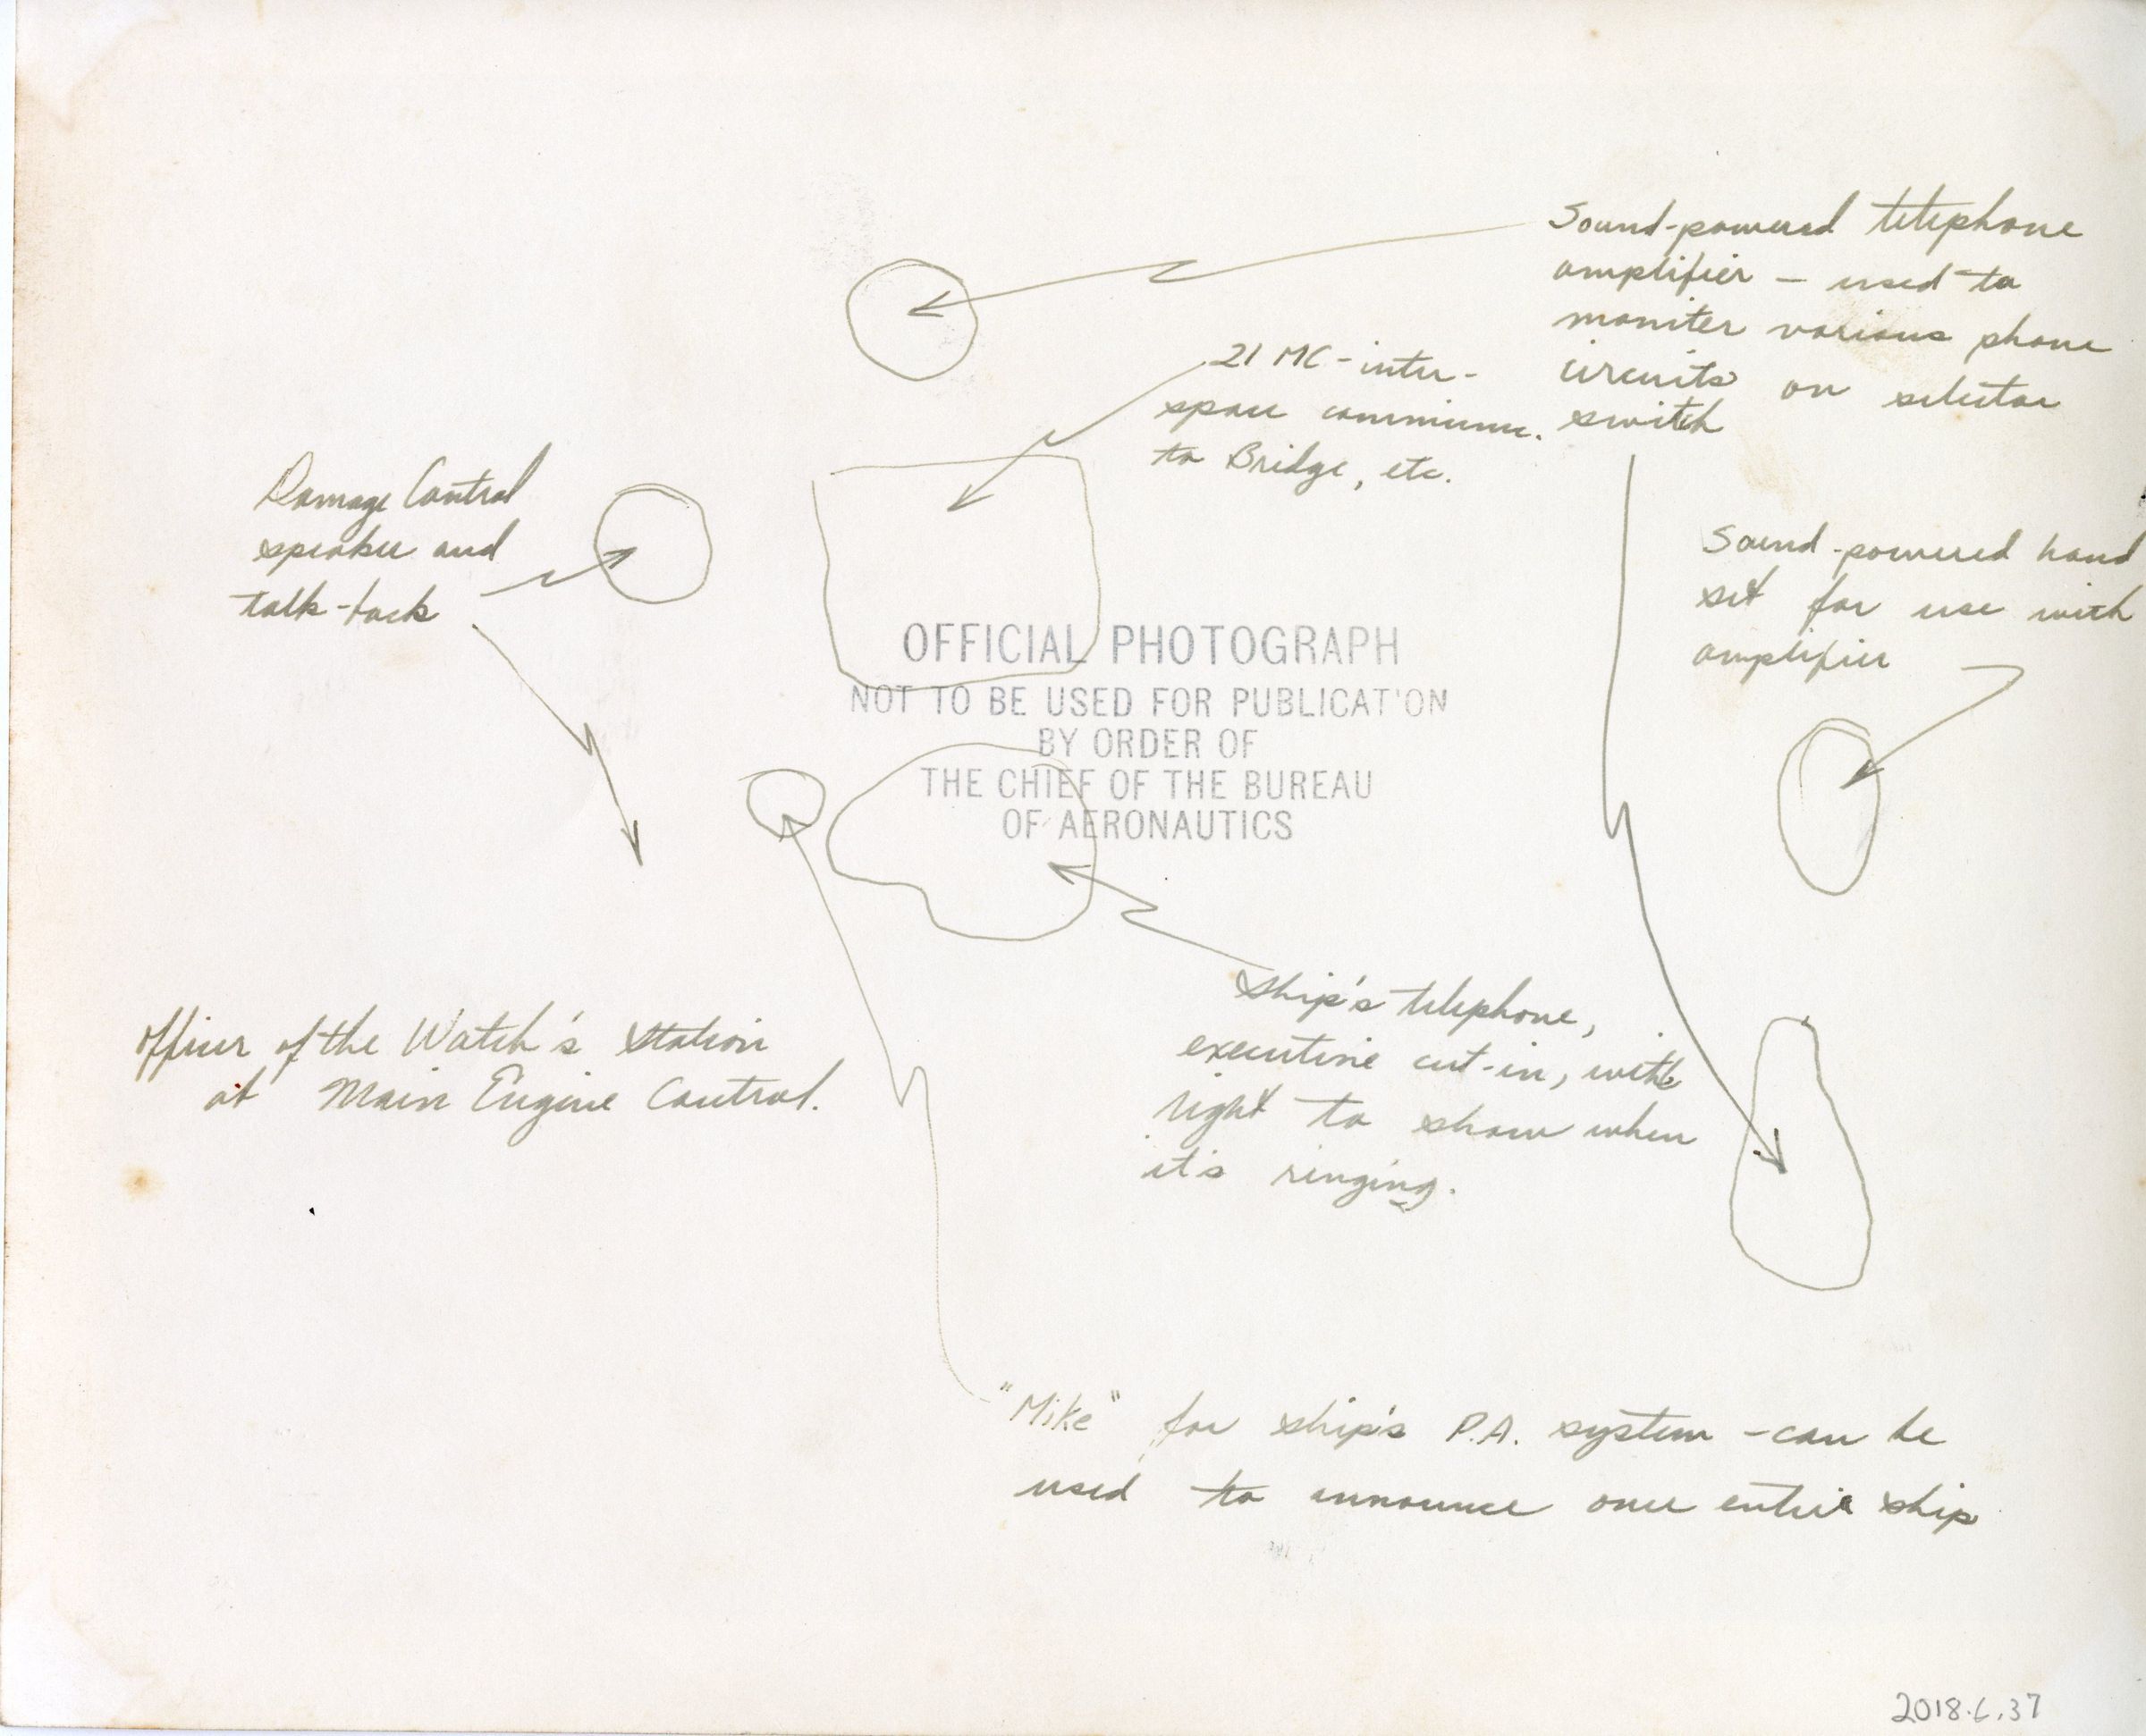 Sound-powered telephone
amplifier – used to
moniter various phone
circuits on selector
switch
21 MC - inter-
space commun.
to Bridge, etc.
Damage Control
speaker and
talk-back
Sound-powered hand
set for use with
amplifier
OFFICIAL PHOTOGRAPH
NOT TO BE USED FOR PUBLICATION
BY ORDER OF
THE CHIEF OF THE BUREAU
OF AERONAUTICS
Officer of the Watch's Station
at Main Engine Control.
Ship's telephone,
executive cut-in, with
light to show when
it's ringing.
"Mike" for ship's P.A. system - can be
used to announce over entire ship
2018.6.37